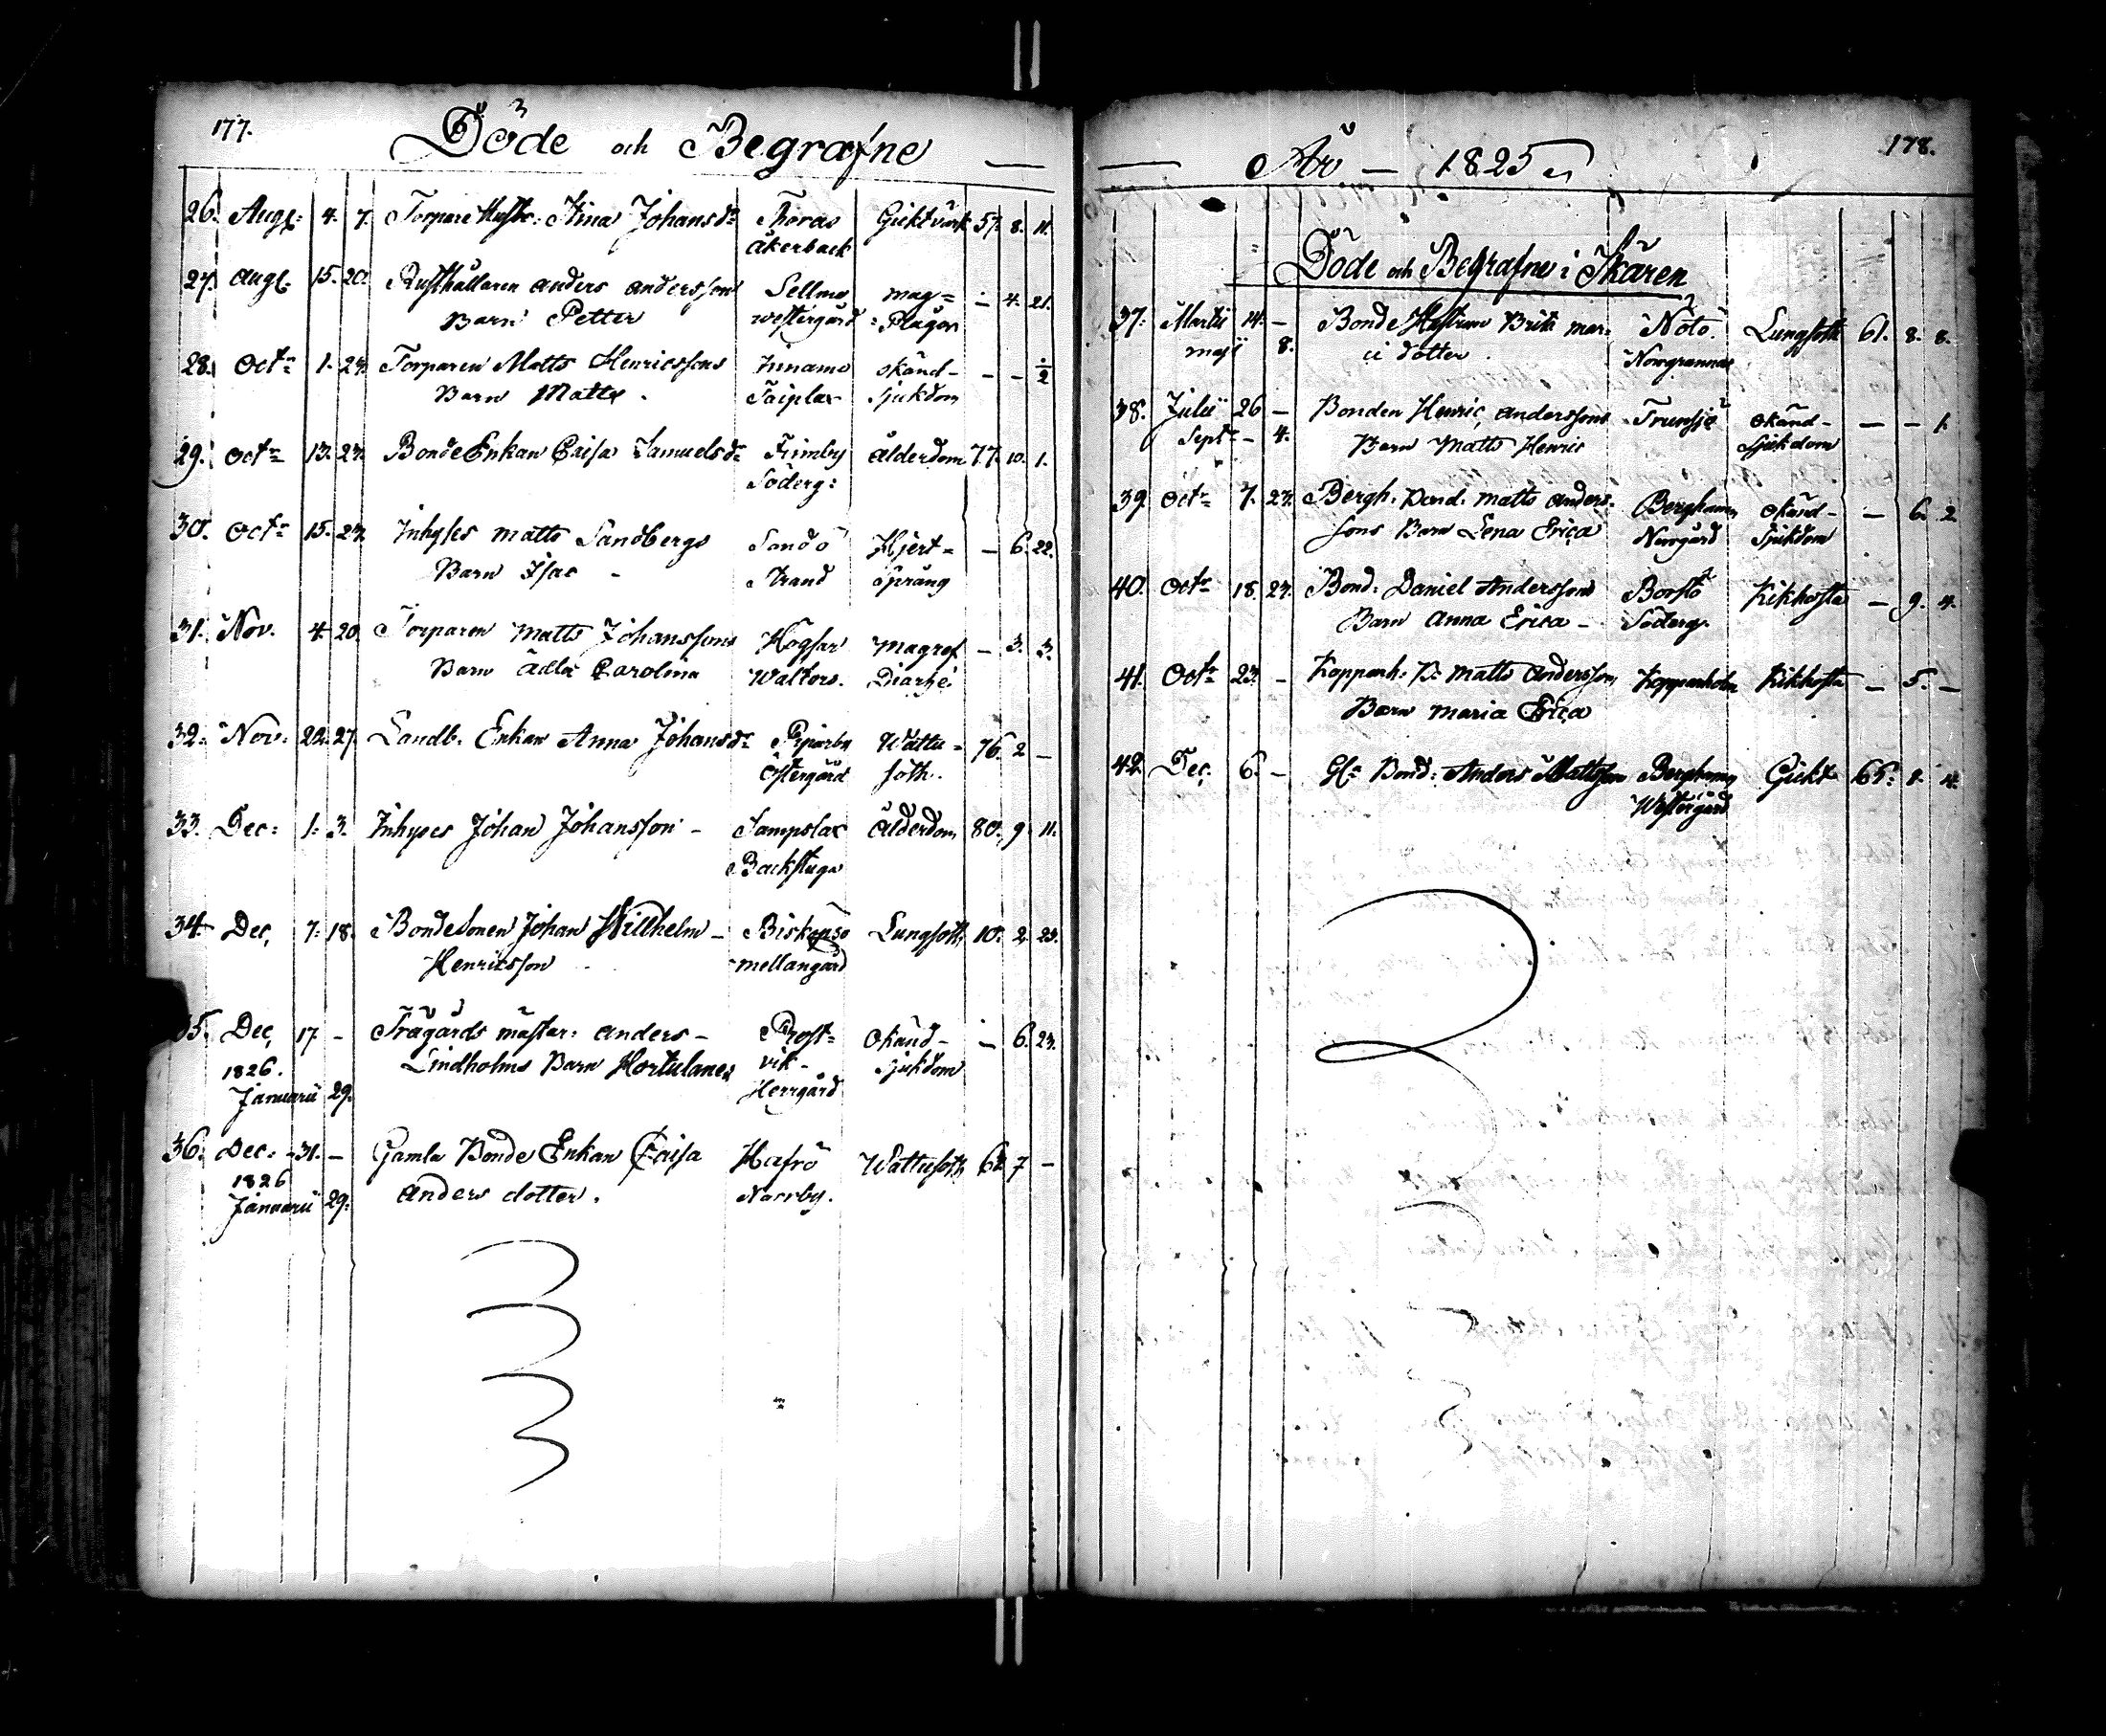 177.
Döde och Begrafne
26. Augt: 4. 7. Torpare Hustr: Stina Johansdr Thoras Gicktvärk 57. 8. 11.
Åkerback
27. Augt: 15. 20. Rusthållaren Anders Anderssons Sellmo mag= — 4. 21.
Barn Petter Westergård Plågor
28. Octr 1. 23. Torparen Matts Henricssons okänd- — — ½
Barn Matts. Sjukdom
29. Octr 13. 23. Bonde Enkan Caisa Samuelsdr Finnby Ålderdom 77. 10. 1.
Söderg:
30. Octr 15. 23. Inhyses Matts Sandbergs Sandö Hjert= — 6. 22.
Barn Isac - Strand språng
31. Nov. 4. 20. Torparen Matts Johanssons Högsar magref — 3. 3.
Barn Adla Carolina Waltors. Diarhé
32. Nov: 22. 27. Landb. Enkan Anna Johansdr Piparby Wattu= 76. 2 —
Östergård soth.
33. Dec: 1. 3. Inhyses Johan Johansson - Sampslax Ålderdom 80. 9. 11.
Backstuga
34. Dec, 7. 18. Bondesonen Johan Willhelm - Biskopsö Lungsoth 10. 2. 23.
Henricsson mellangård
35. Dec, 17. - Trägårds mästar: Anders - Prost= Okänd- — 6. 23.
1826. Lindholms Barn Hortulanes vik- Sjukdom
Januarii 29. Herrgård
36. Dec. 31. — Gamla Bonde Enkan Caisa Hafrö Wattusoth 7 —
1826 Anders dotter. Norrby.
Januarii 29.
178.
År — 1825
Döde och Begrafne i Skären
37. Martii 14. — Bonde Hustrun Brita mar= Nötö Lungsoth 61. 8. 8.
maji 8. ii dotter. Norrgrannas
38. Julii 26 — Bonden Henric Anderssons Trunsjö okänd- — — 1.
Septr - 4. Barn Matts Henric Sjukdom
39. Octr 7. 23. Bergh. Bond. Matts Anders= Berghamn Okänd- — 6. 2.
sons Barn Lena Erica Norrgård Sjukdom
40. Octr 18. 23. Bond. Daniel Anderssons Borstö Kikhosta — 9. 4.
Barn Anna Erica - Söderg.
41. Octr 23. - Kopparh. B. Matts Anderssons Kopparholm Kikhosta — 5. —
Barn Maria Erica
42. Dec. 6. - Gla Bond: Anders Mattsson Berghamn Gickt 65. 8. 4.
Westergård